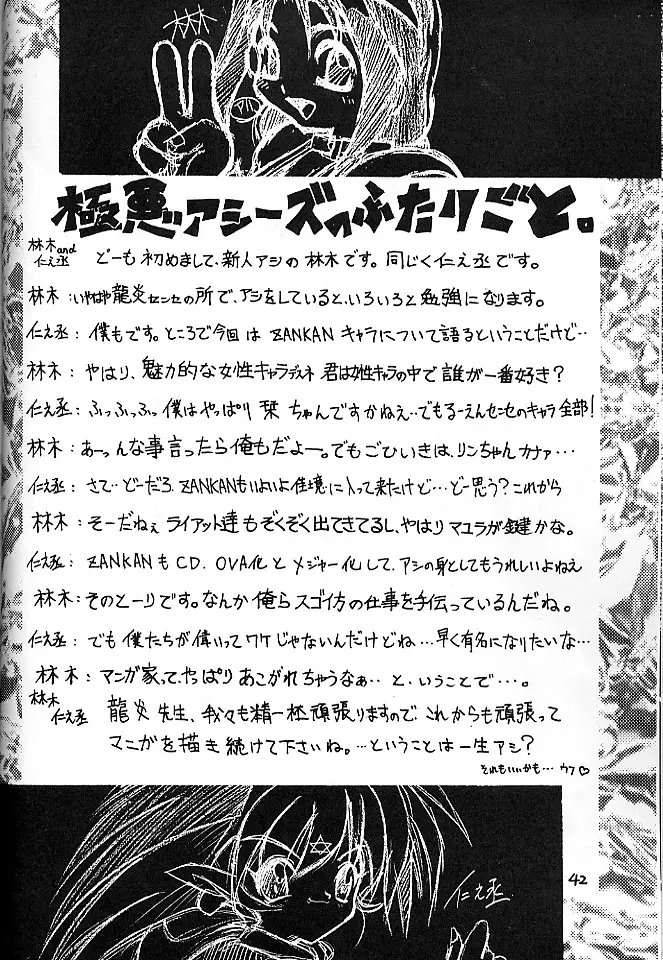 林木
極悪アシーズのふたりごと。
林木and
仁え丞 どーも初めまして、新人アシの林木です。同じく仁え丞です。
林木:いやはや龍炎センセの所で、アシをしていると、いろいろと勉強になります。
仁え丞:僕もです。ところで今回は ZANKAN キャラについて語るということだけど‥
林木:やはり、魅力的な女性キャラデスネ 君は女性キャラの中で誰が一番好き?
仁え丞:ふっふっふっ僕はやっぱり栞ちゃんですかねえ…でもるーえんセンセのキャラ全部!
林木:あーっんな事言ったら俺もだよー。でもごひいきは、リンちゃんカナァ…
仁え丞:さて‥どーだろ、ZANKANもいよいよ佳境に入って来たけど…どー思う?これから
林木:そーだねぇ ライアット達もぞくぞく出てきてるし、やはりマユラが鍵かな。
仁え丞:ZANKANも CD、OVA化とメジャー化して、アシの身としてもうれしいよねえ
林木:そのとーりです。なんか俺らスゴイ方の仕事を手伝っているんだね。
仁え丞:でも僕たちが偉いってワケじゃないんだけどね…早く有名になりたいな…
林木:マンガ家って、やっぱりあこがれちゃうなぁ‥と、いうことで…。
林木
仁え丞 龍炎先生、我々も精一杯頑張りますので、これからも頑張って
マンガを描き続けて下さいね。…ということは一生アシ?
それもいいかも… ウフ♡
42
仁え丞